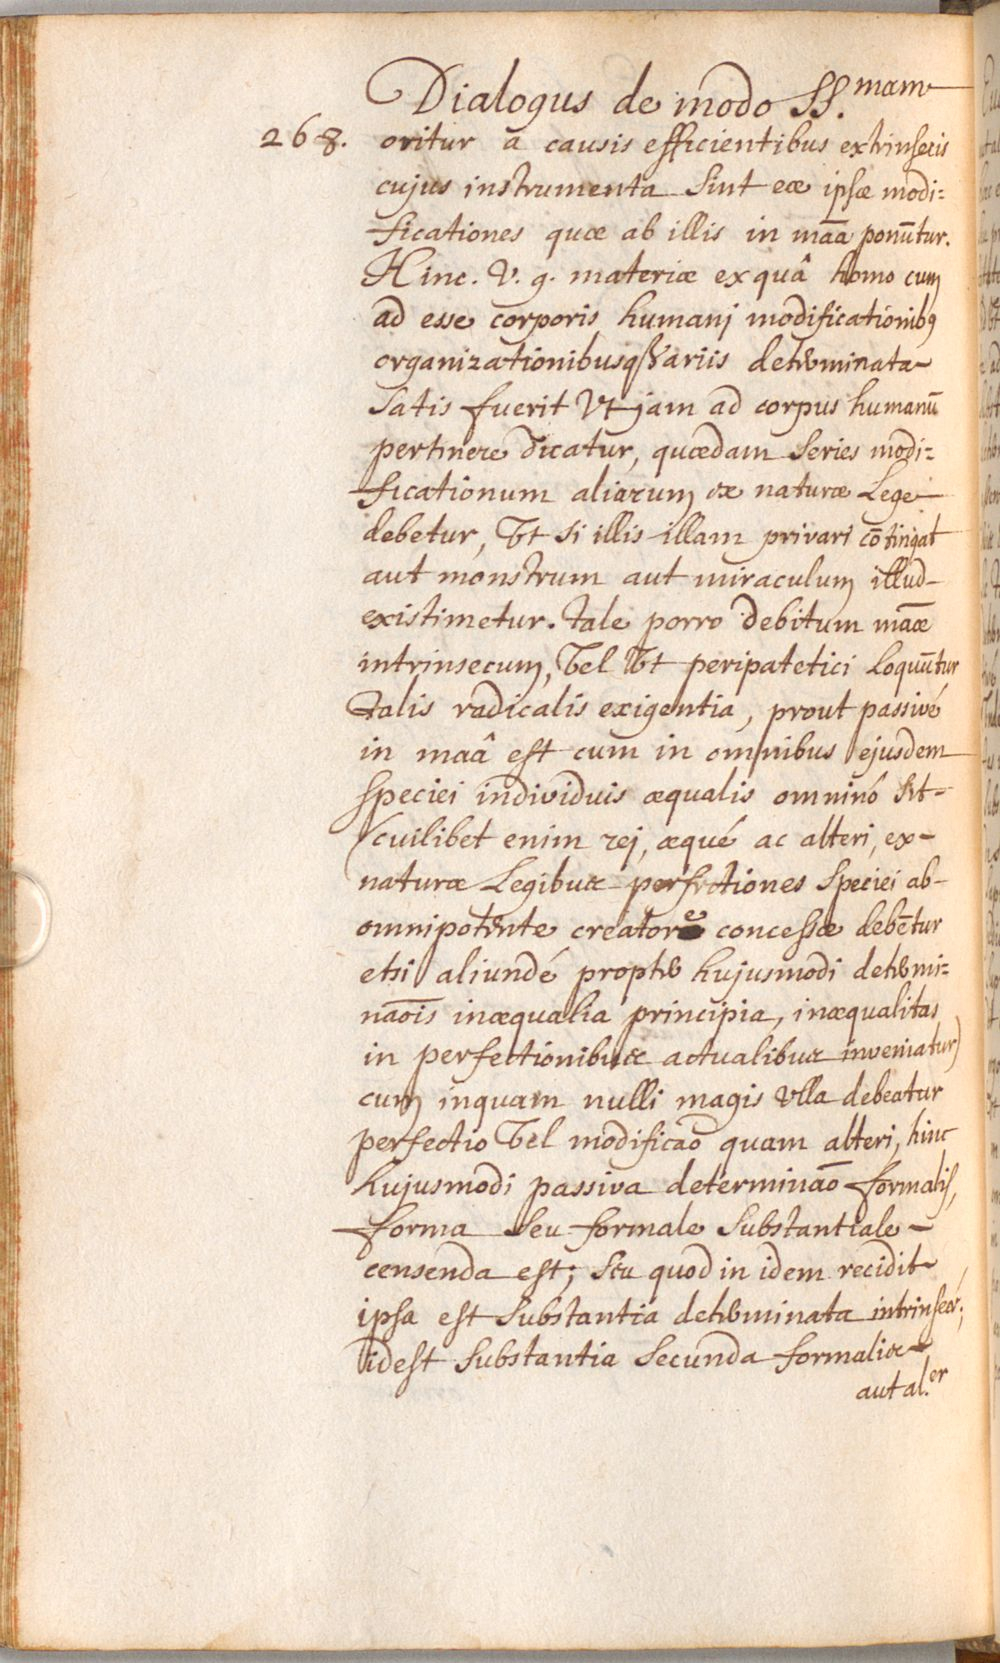 Dialogus de modo SS.mam
268. oritur a causis efficientibus extrinsecis
cujus instrumenta sint eæ ipsæ modi=
ficationes quæ ab illis in māa ponūtur.
Hinc. V. g. materiæ ex quâ homo cum
ad esse corporis humani modificationibq
organizationibusq variis determinata
satis fuerit Vt jam ad corpus humanū
pertinere dicatur, quædam series modi=
ficationum aliarum ex naturæ Lege
debetur, Vt si illis illam privari cōtingat
aut monstrum aut miraculum illud
existimetur. tale porro debitum māæ
intrinsecum, Vel Vt peripatetici Loquūtur
talis radicalis exigentia, prout passivé
in maâ est cum in omnibus ejusdem
speciei individuis æqualis omninó sit
(cuilibet enim rei, æqué ac alteri, ex
naturæ Legibus perfectiones speciei ab
omnipotente creatore concessæ debētur
etsi aliundé propter hujusmodi determi=
nāois inæqualia principia, inæqualitas
in perfectionibus actualibus inveniatur)
cum inquam nulli magis Vlla debeatur
perfectio Vel modificāo quam alteri, hinc
hujusmodi passiva determināo formalis,
forma seu formale substantiale
censenda est; seu quod in idem recidit
ipsa est substantia determinata intrinsecé;
idest substantia secunda formalis
aut al.er